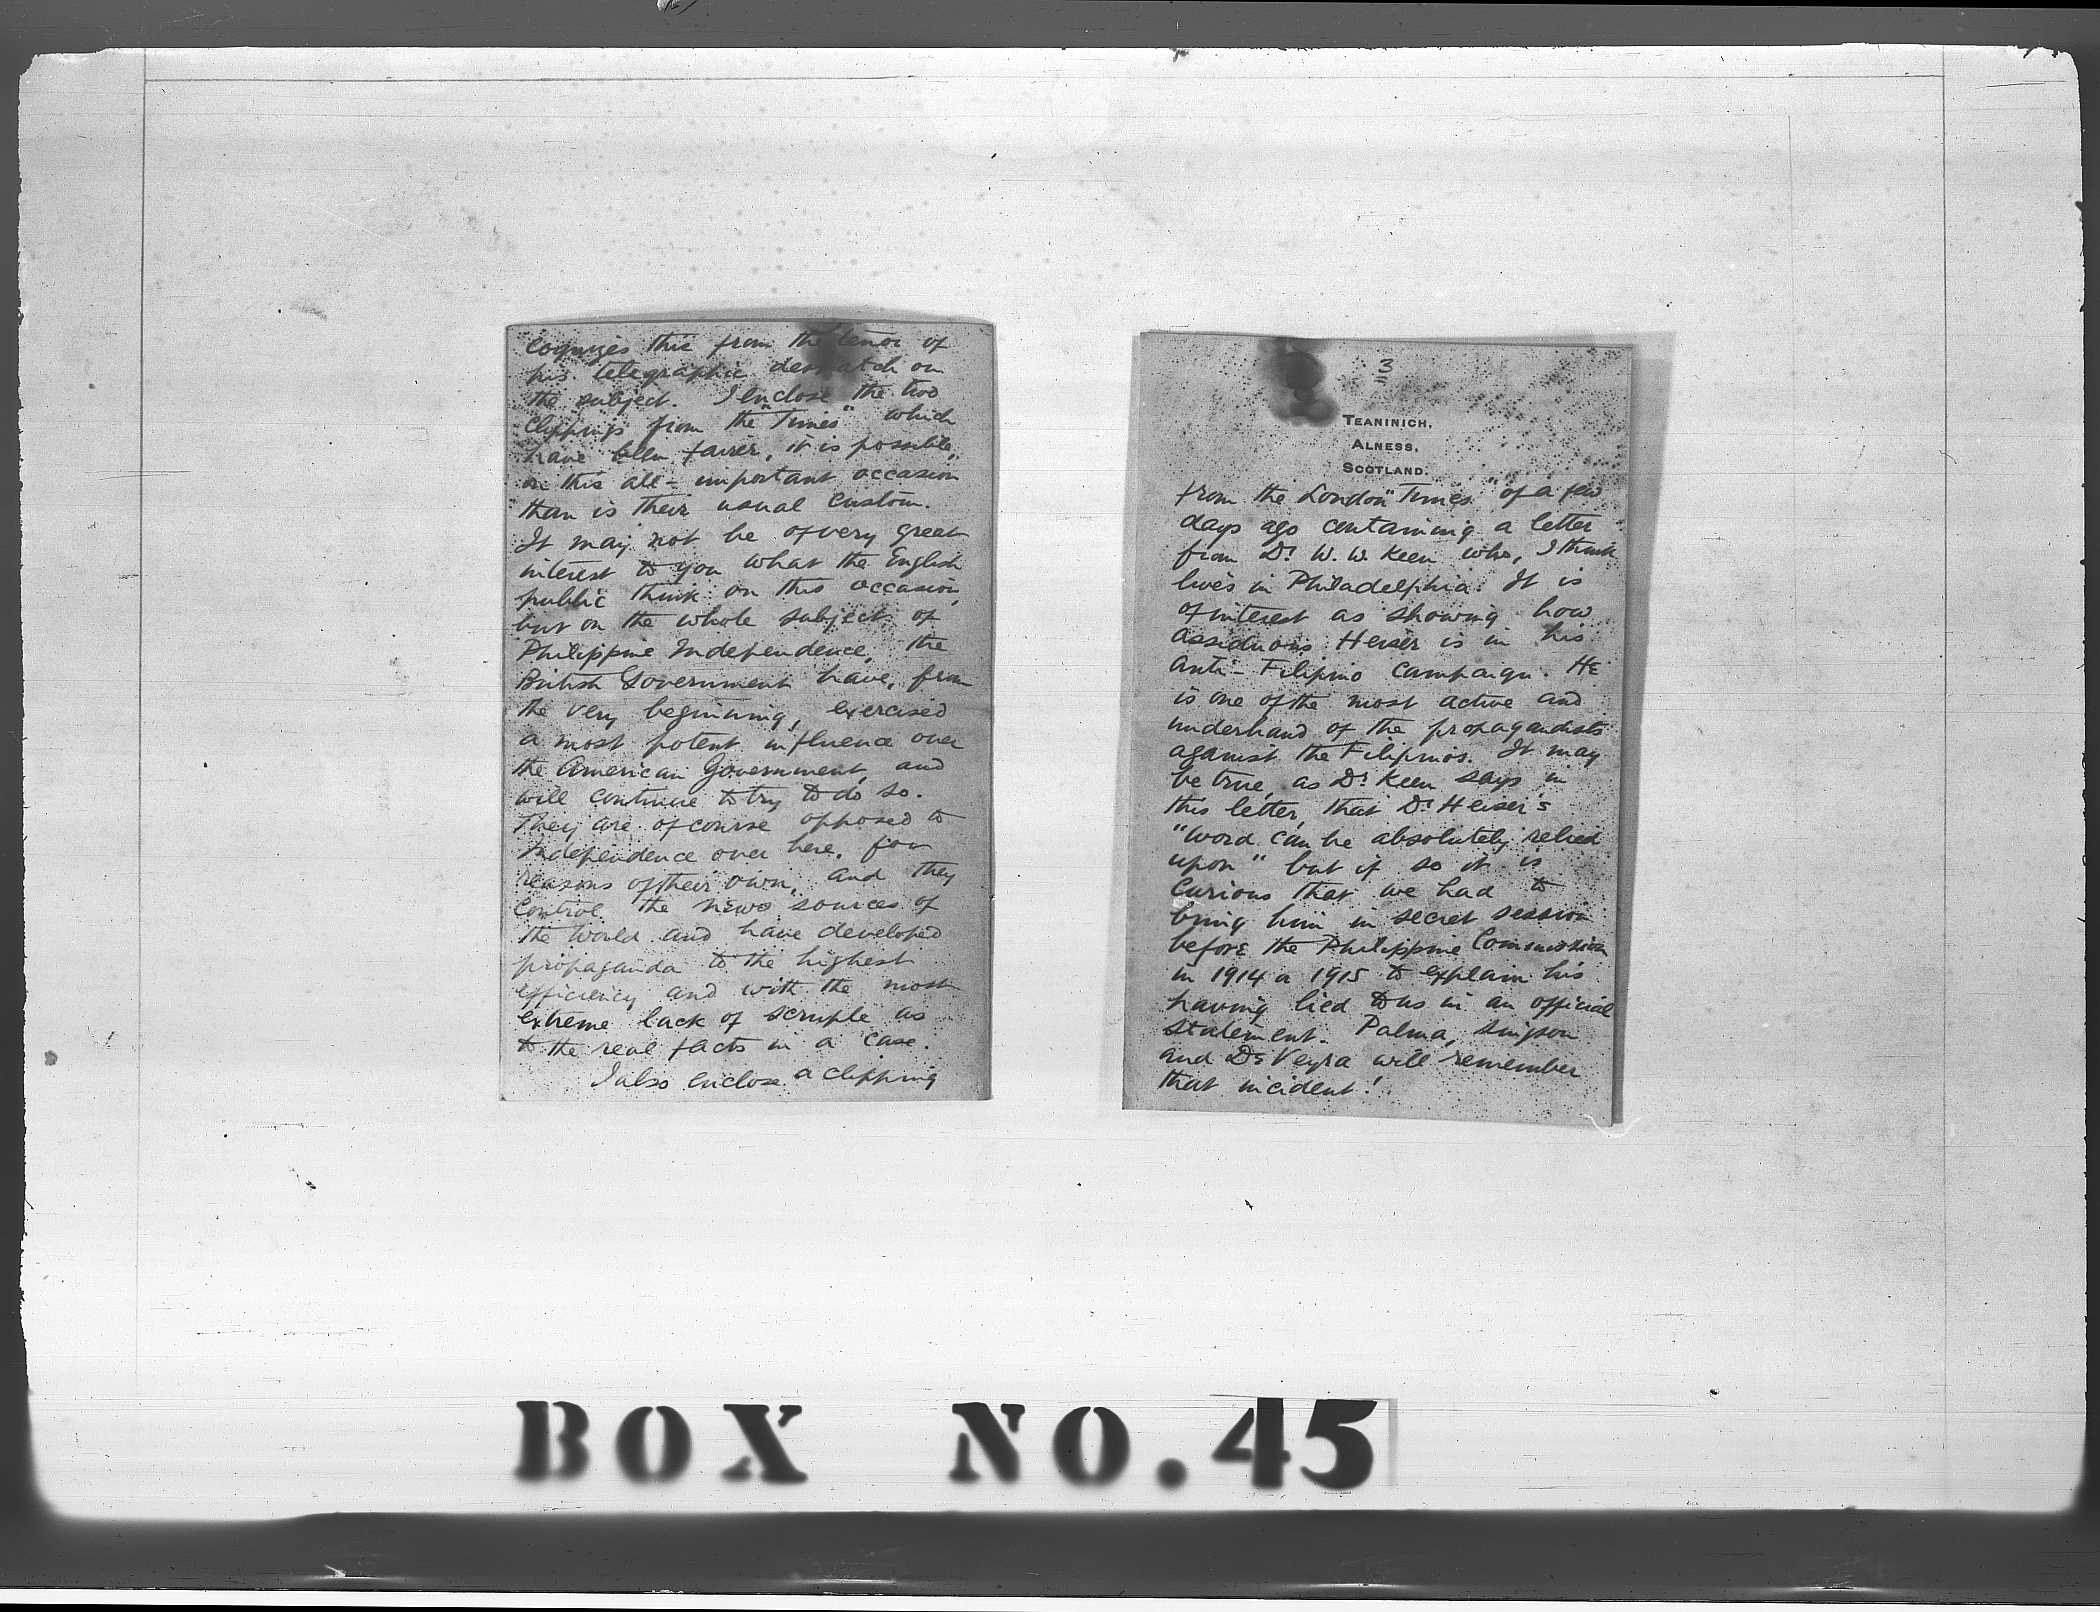 cognizes this from the tenor of
his telegraphic despatch on
the subject. I enclose the two
clippings from the "Times" which
have been fairer, it is possible,
on this all-important occasion
than is their usual custom.
It may not be of very great
interest to you what the English
public think on this occasion,
but on the whole subject of
Philippine Independence, the
British Government have, from
the very beginning, exercised
a most potent influence over
the American Government, and
will continue to try to do so.
They are of course opposed to
Independence over here, for
reasons of their own, and they
control the news sources of
the world and have developed
propaganda to the highest
efficiency and with the most
extreme lack of scruple as
to the real facts in a case.
I also enclose a clipping
3
TEANINICH,
ALNESS,
SCOTLAND.
from the London "Times" of a few
days ago containing a letter
from Dr W. W. Keen who, I think
lives in Philadelphia. It is
of interest as showing how
assiduous Heiser is in his
anti-Filipino campaign. He
is one of the most active and
underhand of the propagandists
against the Filipinos. It may
be true, as Dr Keen says in
this letter, that Dr Heiser's
"word can be absolutely relied
upon" but if so it is
curious that we had to
bring him in secret session
before the Philippine Commission
in 1914 or 1915 to explain his
having lied to us in an official
statement. Palma, Singson
and De Veyra will remember
that incident!
BOX NO. 45